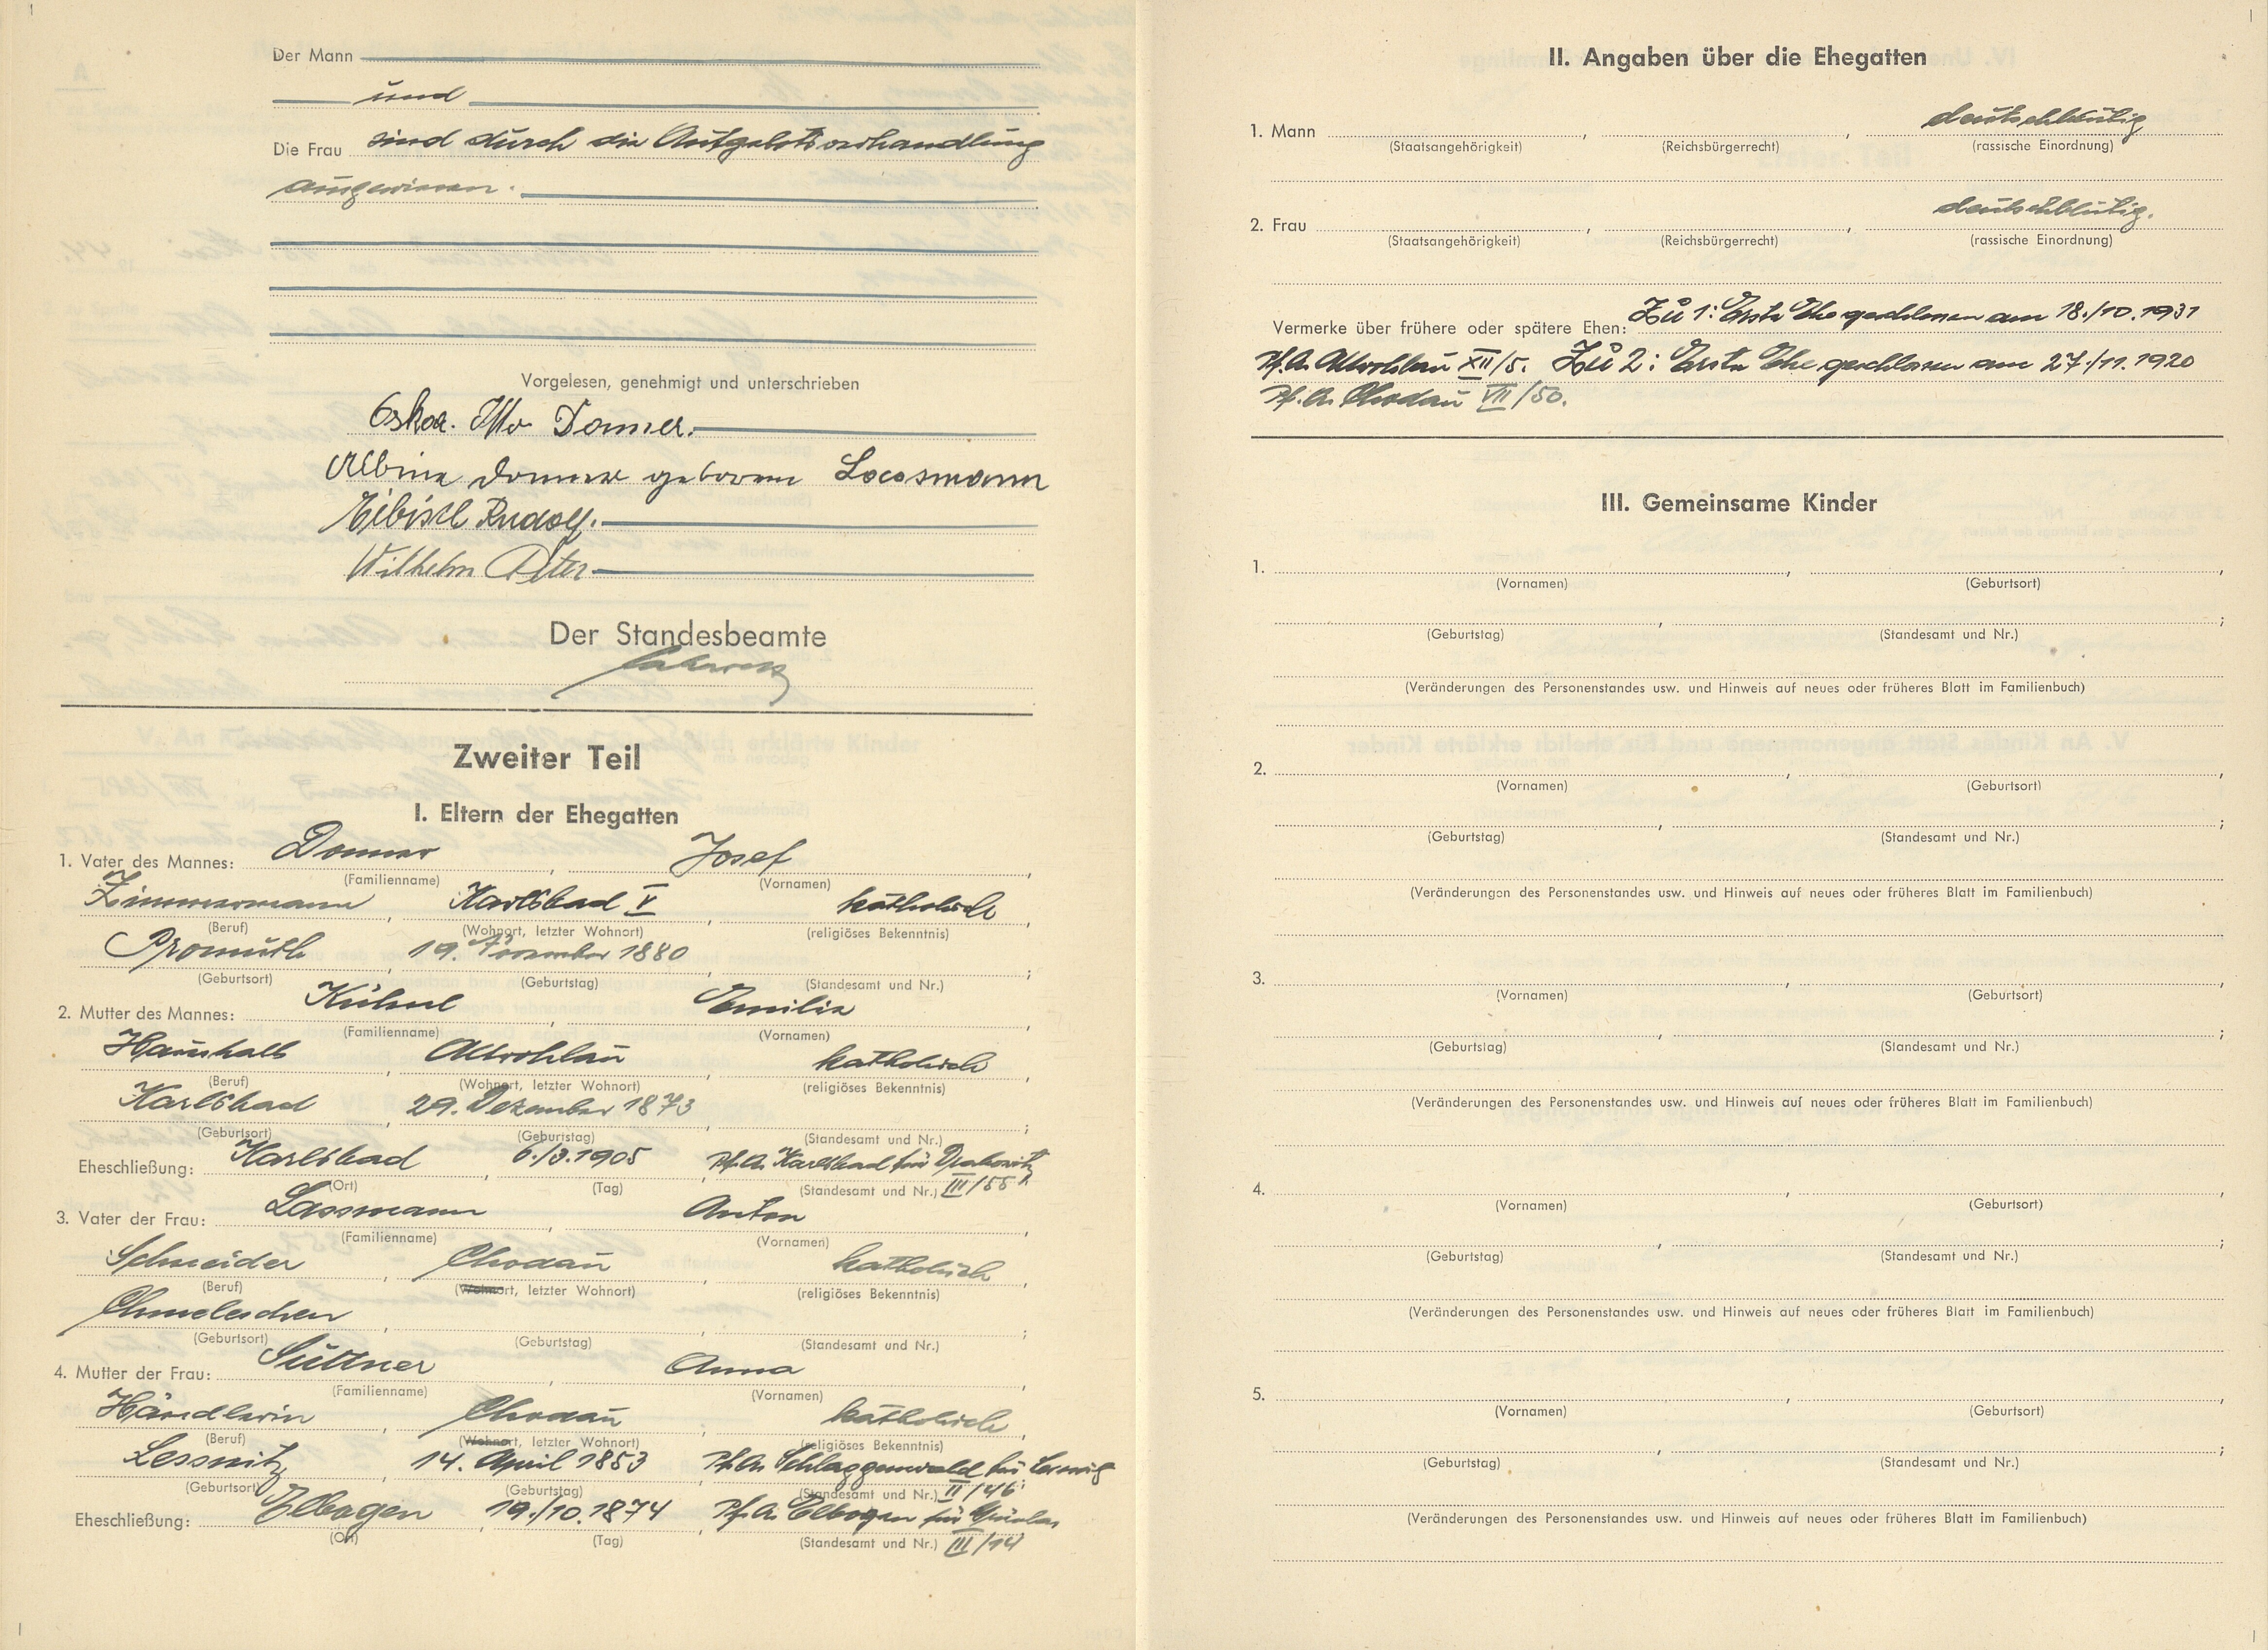 Der Mann
und
Die Frau sind durch die Aufgebotsverhandlung
ausgewiesen.
Vorgelesen, genehmigt und unterschrieben
Oskar Otto Donner.
Albina Donner geboren Lassmann
Eibistl Rudolf.
Wilhelm
Der Standesbeamte
Zweiter Teil
I. Eltern der Ehegatten
1. Vater des Mannes: Donner, Josef,
(Familienname) (Vornamen)
Zimmermann, Karlsbad V, katholisch,
(Beruf) (Wohnort, letzter Wohnort) (religiöses Bekenntnis)
Promuth, 19. November 1880 ;
(Geburtsort) (Geburtstag) (Standesamt und Nr.)
2. Mutter des Mannes: Kühnl, Emilie,
(Familienname) (Vornamen)
Haushalt, Altrohlau, katholisch,
(Beruf) (Wohnort, letzter Wohnort) (religiöses Bekenntnis)
Karlsbad, 29. Dezember 1873 ;
(Geburtsort) (Geburtstag) (Standesamt und Nr.)
Eheschließung: Karlsbad, 6./3.1905, Pf.A. Karlsbad für Drahowitz
(Ort) (Tag) (Standesamt und Nr.) III/55
3. Vater der Frau: Lassmann, Anton,
(Familienname) (Vornamen)
Schneider, Chodau, katholisch,
(Beruf) (Wohnort, letzter Wohnort) (religiöses Bekenntnis)
Chmeleschen, , ;
(Geburtsort) (Geburtstag) (Standesamt und Nr.)
4. Mutter der Frau: Süttner, Anna,
(Familienname) (Vornamen)
Händlerin, Chodau, katholisch,
(Beruf) (Wohnort, letzter Wohnort) (religiöses Bekenntnis)
Lessnitz, 14. April 1853, Pf.A. Schlaggenwald für
(Geburtsort) (Geburtstag) (Standesamt und Nr.) II/46
Eheschließung: Elbogen, 19./10.1874, Pf.A. Elbogen für
(Ort) (Tag) (Standesamt und Nr.) III/14
II. Angaben über die Ehegatten
1. Mann , , deutschblütig
(Staatsangehörigkeit) (Reichsbürgerrecht) (rassische Einordnung)
2. Frau , , deutschblütig.
(Staatsangehörigkeit) (Reichsbürgerrecht) (rassische Einordnung)
Vermerke über frühere oder spätere Ehen: Zu 1: Erste Ehe geschlossen am 18./10.1931
Pf.A. Altrohlau XII/5. Zu 2: Erste Ehe geschlossen am 27./11.1920
Pf.A. Chodau VII/50.
III. Gemeinsame Kinder
1. , ,
(Vornamen) (Geburtsort)
, ;
(Geburtstag) (Standesamt und Nr.)
(Veränderungen des Personenstandes usw. und Hinweis auf neues oder früheres Blatt im Familienbuch)
2. , ,
(Vornamen) (Geburtsort)
, ;
(Geburtstag) (Standesamt und Nr.)
(Veränderungen des Personenstandes usw. und Hinweis auf neues oder früheres Blatt im Familienbuch)
3. , ,
(Vornamen) (Geburtsort)
, ;
(Geburtstag) (Standesamt und Nr.)
(Veränderungen des Personenstandes usw. und Hinweis auf neues oder früheres Blatt im Familienbuch)
4. , ,
(Vornamen) (Geburtsort)
, ;
(Geburtstag) (Standesamt und Nr.)
(Veränderungen des Personenstandes usw. und Hinweis auf neues oder früheres Blatt im Familienbuch)
5. , ,
(Vornamen) (Geburtsort)
, ;
(Geburtstag) (Standesamt und Nr.)
(Veränderungen des Personenstandes usw. und Hinweis auf neues oder früheres Blatt im Familienbuch)